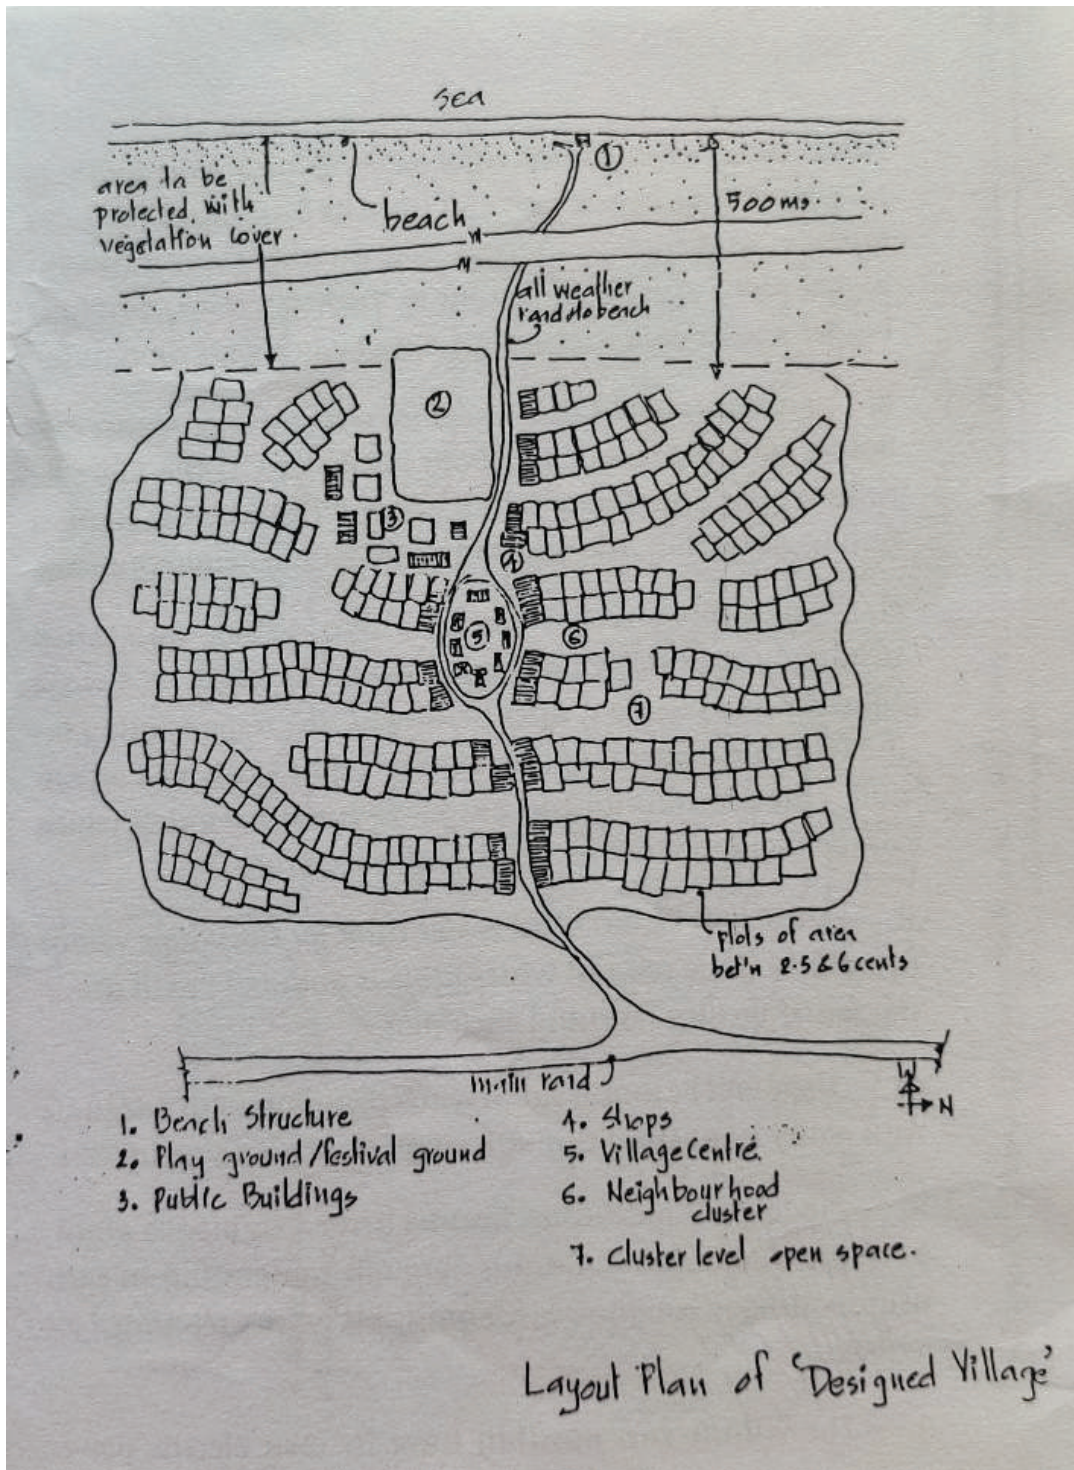 sea
1
area to be
protected with
vegetation cover
beach
500ms.
all weather
road to beach
2
3
4
5
6
7
plots of area
bet'n 2.5 & 6 cents
main road
W
N
1. Beach Structure
2. Play ground/festival ground
3. Public Buildings
4. Shops
5. Village Centre.
6. Neighbourhood
cluster
7. Cluster level open space.
Layout Plan of 'Designed Village'